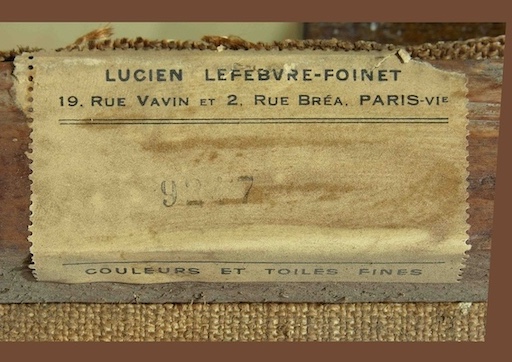 LUCIEN LEFEBVRE-FOINET
19, RUE VAVIN ET 2, RUE BRÉA, PARIS-VIE
COULEURS ET TOILES FINES